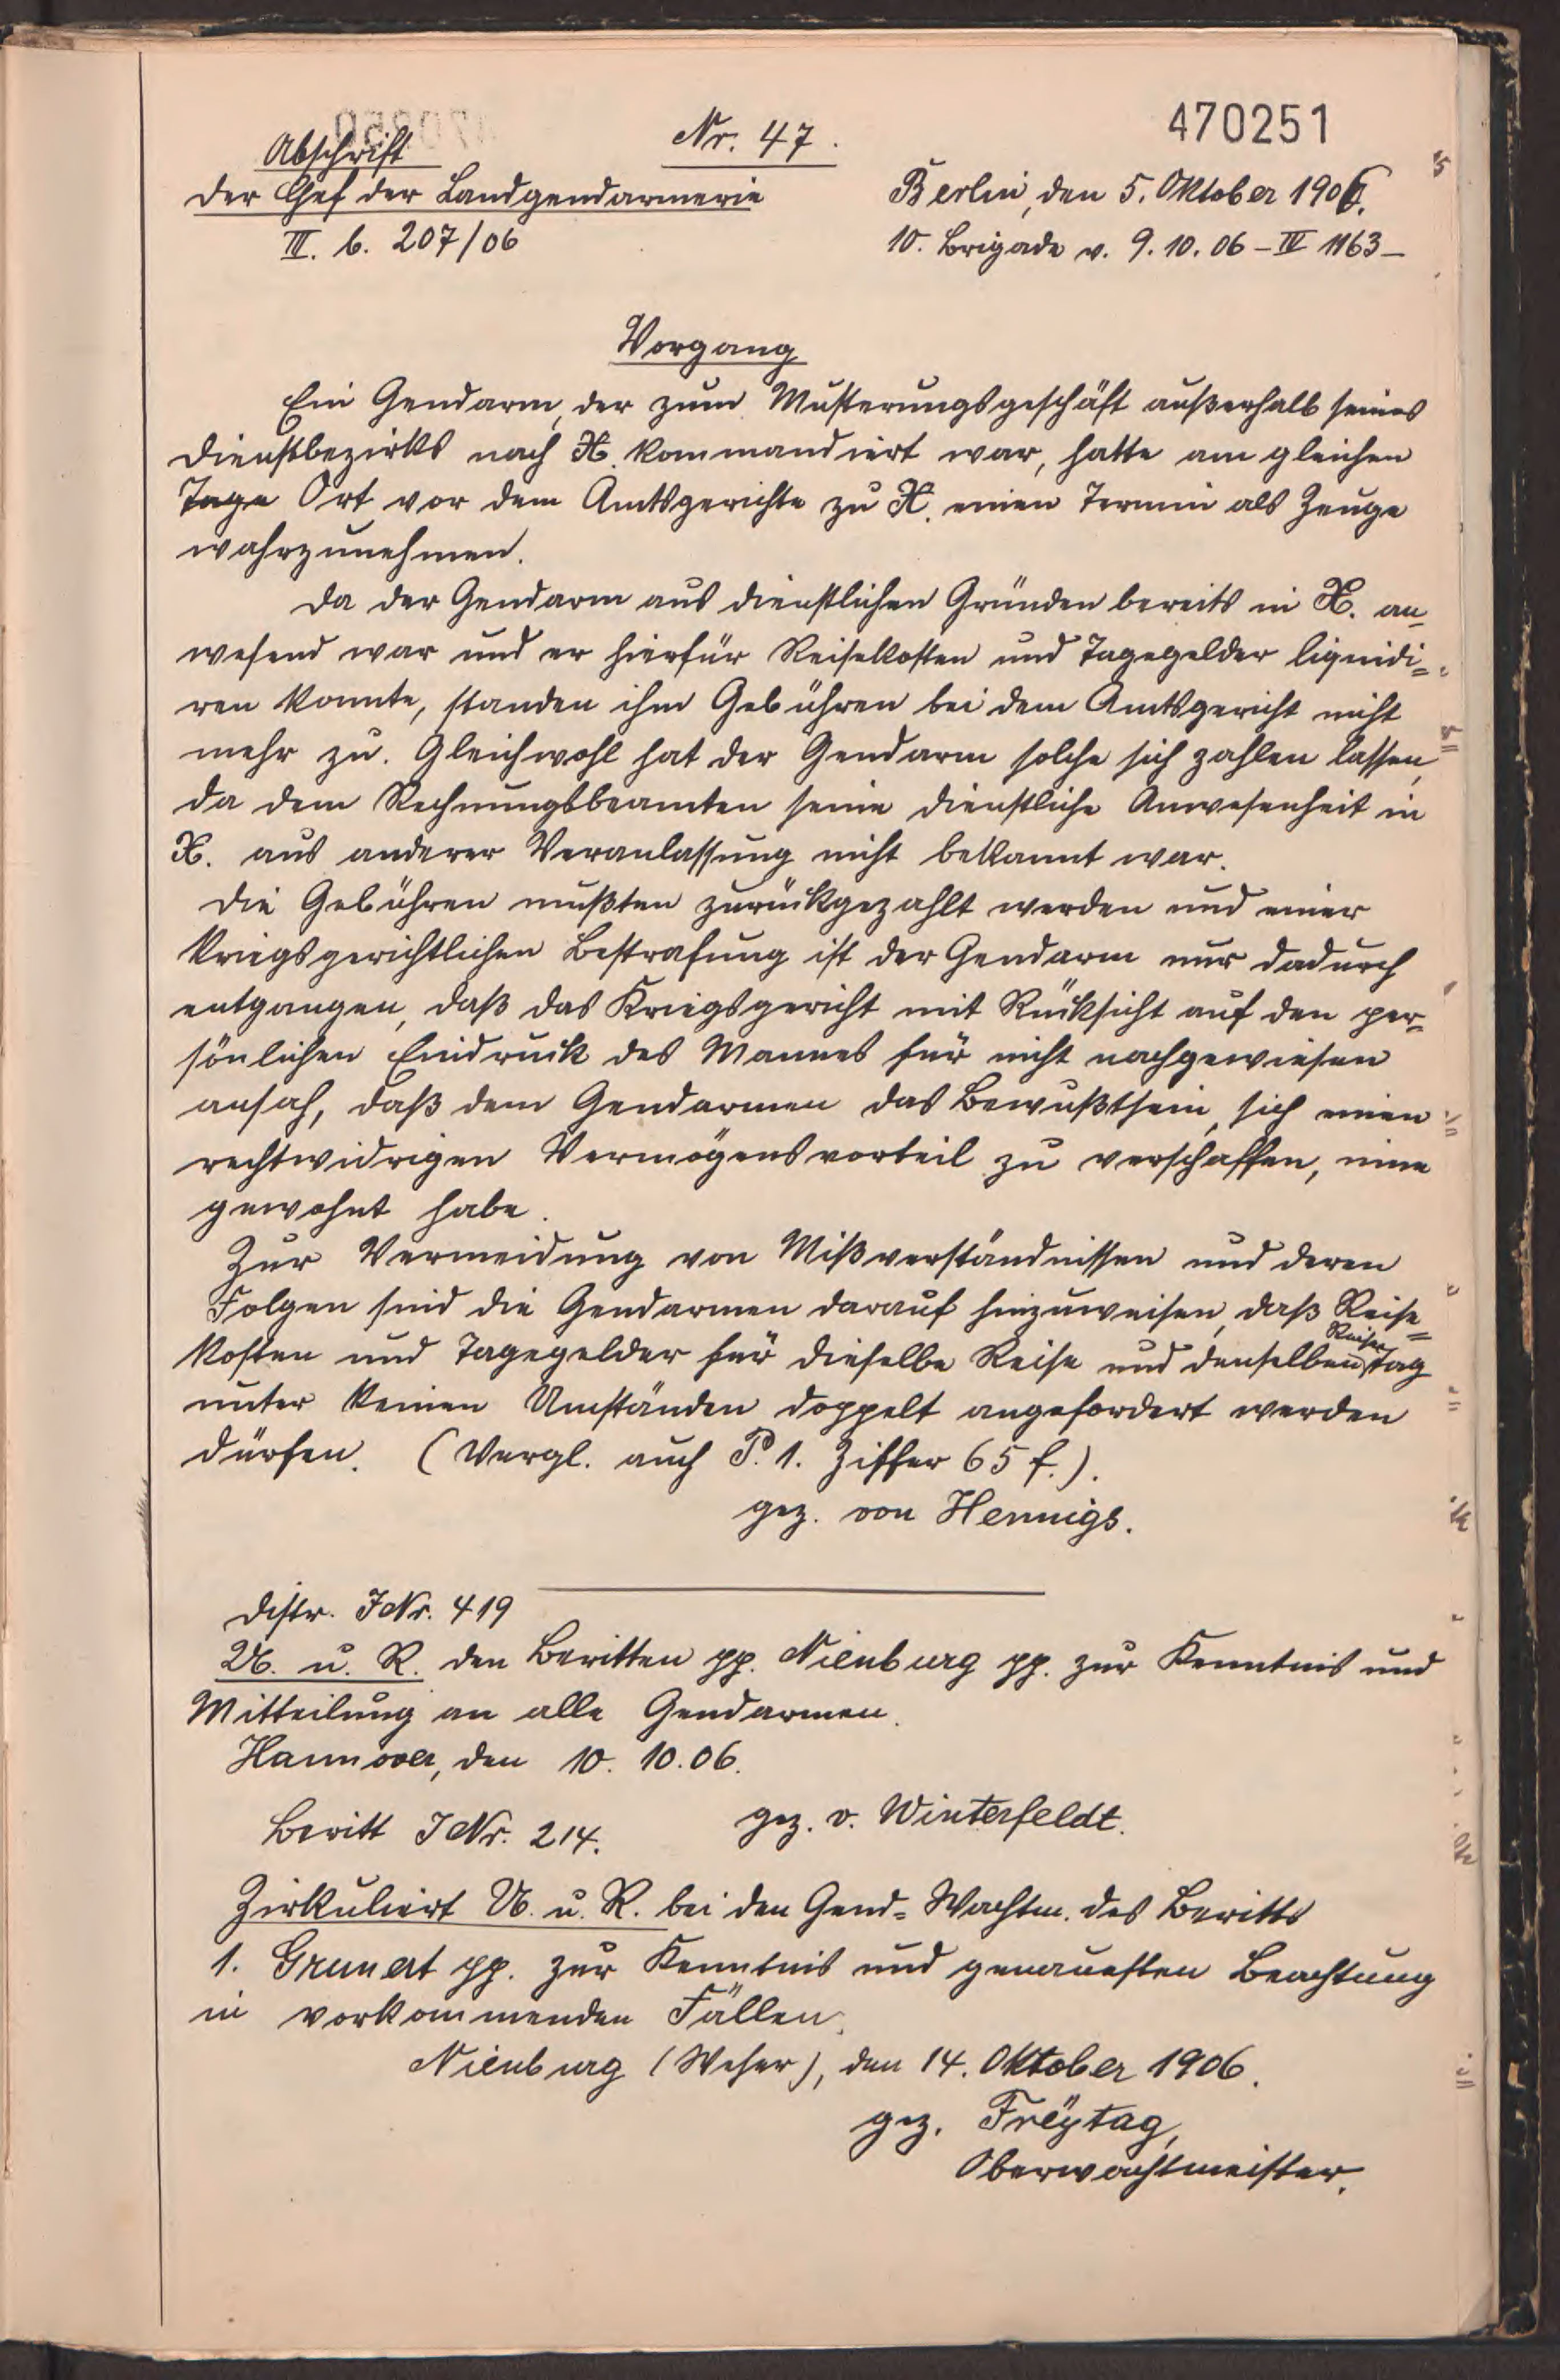 470251
Abschrift
Nr. 47.
Der Chef der Landgendarmerie
Berlin, den 5. Oktober 1906.
III. b. 207/06
10. Brigade v. 9.10.06 – IV 1163 –
Vorgang
Ein Gendarm, der zum Musterungsgeschäft außerhalb seines
Dienstbezirks nach X. kommandiert war, hatte am gleichen
Tage Ort vor dem Amtsgerichte zu X. einen Termin als Zeuge
wahrzunehmen.
Da der Gendarm aus dienstlichen Gründen bereits in X. an-
wesend war und er hierfür Reisekosten und Tagegelder liquidi=
ren konnte, standen ihm Gebühren bei dem Amtsgericht nicht
mehr zu. Gleichwohl hat der Gendarm solche sich zahlen lassen,
da dem Rechnungsbeamten seine dienstliche Anwesenheit in
X. aus anderer Veranlassung nicht bekannt war.
Die Gebühren mußten zurückgezahlt werden und einer
kriegsgerichtlichen Bestrafung ist der Gendarm nur dadurch
entgangen, daß das Kriegsgericht mit Rücksicht auf den per-
sönlichen Eindruck des Mannes für nicht nachgewiesen
ansah, daß dem Gendarmen das Bewußtsein, sich einen
rechtwidrigen Vermögensvorteil zu verschaffen, inne
gewohnt habe.
Zur Vermeidung von Mißverständnissen und deren
Folgen sind die Gendarmen darauf hinzuweisen, daß Reise=
kosten und Tagegelder für dieselbe Reise und denselben Reise Tag
unter keinen Umständen doppelt angefordert werden
dürfen. (Vergl. auch P. 1. Ziffer 65 f.).
gez. von Hennigs.
Distr. J Nr. 419
U. u. R. den Beritten pp. Nienburg pp. zur Kenntnis und
Mitteilung an alle Gendarmen.
Hannover, den 10. 10. 06.
gez. v. Winterfeldt.
Beritt J Nr. 214.
Zirkuliert U. u. R. bei den Gend=Wachtm. des Beritts
1. Grunert pp. zur Kenntnis und genauesten Beachtung
in vorkommenden Fällen.
Nienburg (Weser), den 14. Oktober 1906.
gez. Freÿtag,
Oberwachtmeister.